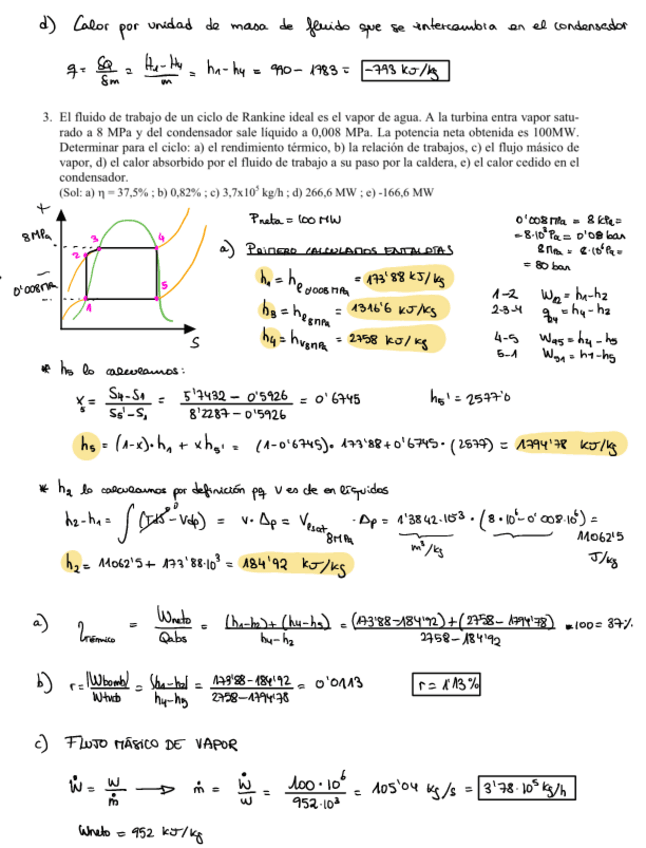 d) Calor por unidad de masa de fluido que se intercambia en el condensador
q = δQ/δm = (H₁-H₄)/m = h₁-h₄ = 990 - 1783 = -793 kJ/kg
3. El fluido de trabajo de un ciclo de Rankine ideal es el vapor de agua. A la turbina entra vapor satu-
rado a 8 MPa y del condensador sale líquido a 0,008 MPa. La potencia neta obtenida es 100MW.
Determinar para el ciclo: a) el rendimiento térmico, b) la relación de trabajos, c) el flujo másico de
vapor, d) el calor absorbido por el fluido de trabajo a su paso por la caldera, e) el calor cedido en el
condensador.
(Sol: a) η = 37,5% ; b) 0,82% ; c) 3,7x10⁵ kg/h ; d) 266,6 MW ; e) -166,6 MW
8MPa
0'008MPa
1
2
3
4
5
S
Pneta = 100 MW
a) PRIMERO CALCULAMOS ENTALPIAS
h₁ = he 0'008 MPa = 173'88 kJ/kg
h₃ = he 8MPa = 1316'6 kJ/kg
h₄ = hv 8MPa = 2758 kJ/kg
0'008 MPa = 8 kPa =
= 8·10³ Pa = 0'08 bar
8 MPa = 8·10⁶ Pa =
= 80 bar
1-2 W₁₂ = h₁-h₂
2-3-4 q₂₄ = h₄-h₂
4-5 W₄₅ = h₄-h₅
5-1 W₅₁ = h₁-h₅
* h₅ lo calculamos:
x₅ = (S₄-S₁)/(S₅'-S₁) = (5'7432 - 0'5926)/(8'2287 - 0'5926) = 0'6745 h₅' = 2577'0
h₅ = (1-x)·h₁ + x h₅' = (1-0'6745)·173'88 + 0'6745·(2577) = 1794'78 kJ/kg
* h₂ lo calculamos por definición pq V es cte en líquidos
h₂-h₁ = ∫(Tds⁰ - Vdp) = v·Δp = Vesat 8MPa · Δp = 1'3842·10⁻³ · (8·10⁶ - 0'008·10⁶) =
m³/kg
11062'5
J/kg
h₂ = 11062'5 + 173'88·10³ = 184'92 kJ/kg
a) η térmico = Wneto/Qabs = ((h₁-h₂)+(h₄-h₅))/(h₄-h₂) = ((173'88-184'92)+(2758-1794'78))/(2758-184'92) · 100 = 37%
b) r = |Wbomb|/Wturb = (h₁-h₂)/(h₄-h₅) = (173'88-184'92)/(2758-1794'78) = 0'0113 r = 1'13%
c) FLUJO MÁSICO DE VAPOR
Ẇ = W/ṁ → ṁ = Ẇ/W = (100·10⁶)/(952·10³) = 105'04 kg/s = 3'78·10⁵ kg/h
Wneto = 952 kJ/kg